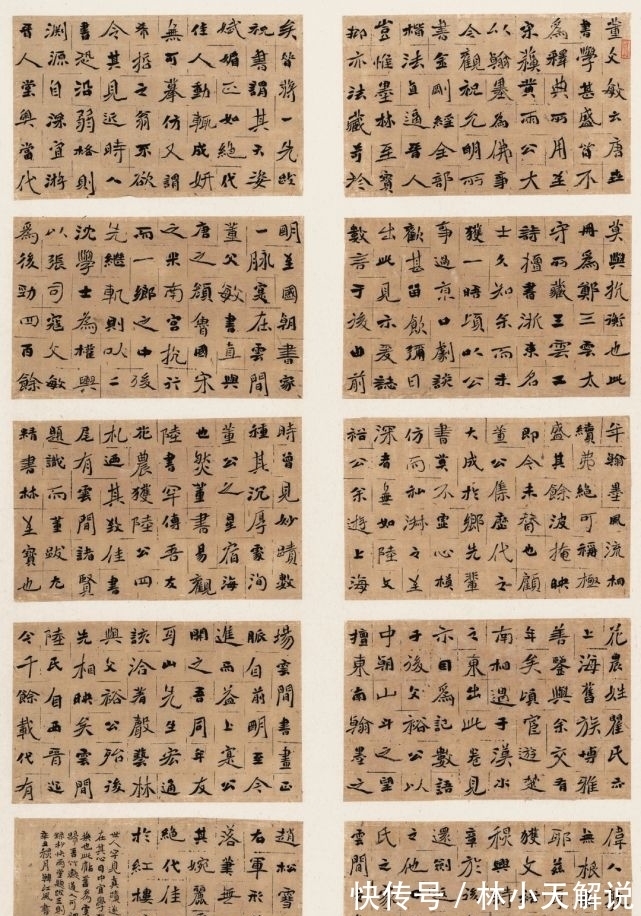 董文敏云唐
書學甚盛皆不
爲釋典所用至
宋蘇黃兩公大
以翰墨爲佛事
今觀祝允明所
書金剛經全部
楷法直逼晉人
豈惟墨林至寶
抑亦法藏奇珍
矣皆將一先啟
祝書謂其天姿
斌媚正如絕代
佳人動輒成妍
無可摹仿又謂
希哲之翁不欲
令其見近時人
書恐沿弱格則
淵源自深宜游
晉人堂奧當代
莫與抗衡也此
冊爲鄭三雲太
守所藏三雲工
詩擅書浙東名
士久知余而未
獲一晤頃以公
事過京口劇談
歡甚留飲彌日
出此見示爰誌
數言于後曲前
明至國朝書家
一脉寔在雲間
董文敏書直與
唐之顏魯國宋
之米南宮抗行
而一鄉之中後
先繼軌則以二
沈學士為權輿
以張司寇文敏
爲後勁四百餘
年翰墨風流相
續弗絕可稱極
盛其餘波掩映
即今未替也顧
董公集歷代之
大成於鄉先輩
書莫不靈心模
仿而私淑之至
深者無如陸文
裕公余遊上海
時曾見妙蹟數
種其沉厚蒙洵
董公之星宿海
也然董書易觀
陸書罕傳吾友
花農獲陸公四
札適其數佳書
尾有雲間諸賢
題識而董跋尤
精書林至寶也
花農姓瞿氏亦
上海舊族博雅
善鑒與余交有
年矣頃宦遊楚
南相遇于漢水
之東出此卷見
示因爲記數語
于後文裕公以
中朝山斗之望
擅東南翰墨之
場雲間書畫正
脈自前明至今
進而益上寔公
開之吾同年友
耳山先生宏通
該洽著聲藝林
與文裕公殆後
先相映矣雲間
陸氏自西晉迄
今千餘載代有
偉人
無根
耶茲
獲文
還劍
章於
氏之
雲間
趙松雪
右軍形
落筆無
其婉麗
絕代佳
於紅樓
快传号 / 林小天解说